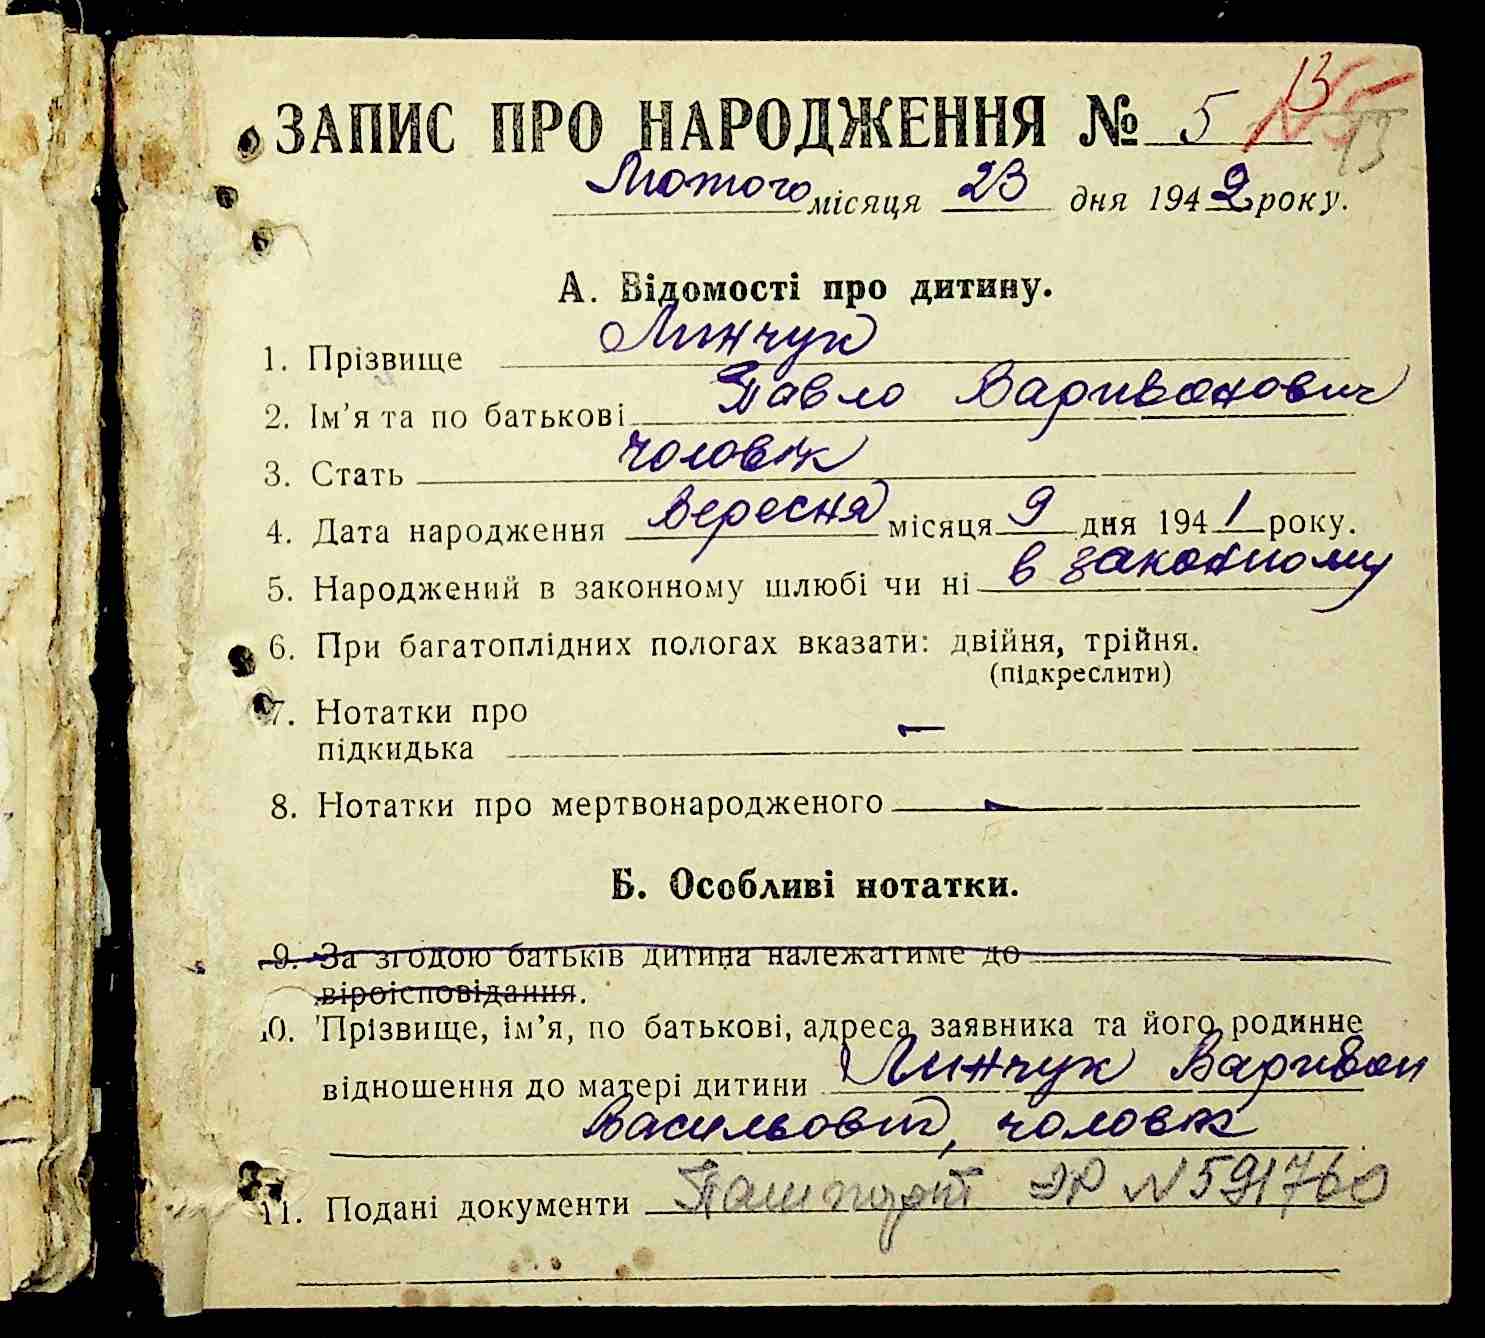 13
ЗАПИС ПРО НАРОДЖЕННЯ № 5
13
Лютого місяця 23 дня 1942 року.
А. Відомості про дитину.
1. Прізвище Линчук
2. Ім'я та по батькові Павло Варивонович
3. Стать чоловік
4. Дата народження Вересня місяця 9 дня 1941 року.
5. Народжений в законному шлюбі чи ні в законному
6. При багатоплідних пологах вказати: двійня, трійня.
(підкреслити)
7. Нотатки про
підкидька –
8. Нотатки про мертвонародженого –
Б. Особливі нотатки.
9. За згодою батьків дитина належатиме до
віроісповідання.
10. Прізвище, ім'я, по батькові, адреса заявника та його родинне
відношення до матері дитини Линчук Варивон
Васильович, чоловік
11. Подані документи Пашпорт ЭР № 591760